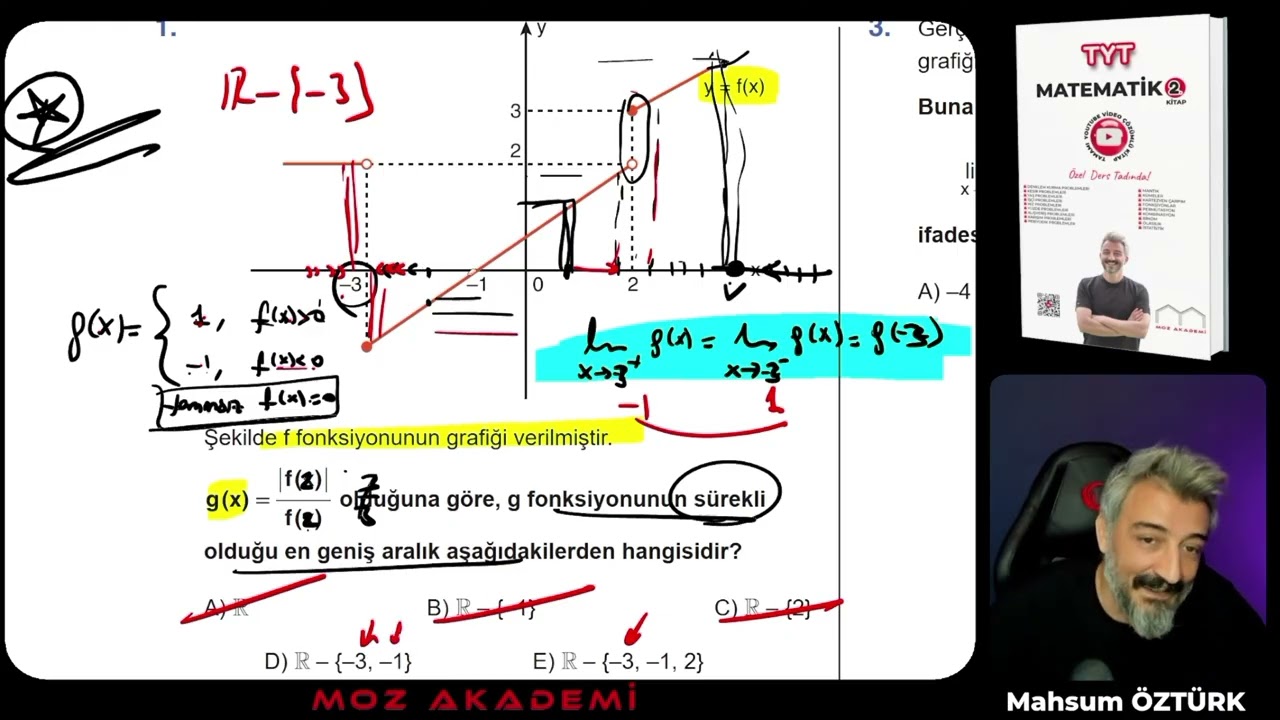 1.
y
y = f(x)
3
2
–3
–1
0
2
x
R-{-3}
g(x)= { 1, f(x)>0
-1, f(x)<0
tanımsız f(x)=0
lim g(x) = lim g(x) = g(-3)
x→-3⁺ x→-3⁻
-1 1
Şekilde f fonksiyonunun grafiği verilmiştir.
olduğuna göre, g fonksiyonunun sürekli
g(x) =
olduğu en geniş aralık aşağıdakilerden hangisidir?
A) ℝ
B) ℝ – {–1}
C) ℝ – {2}
D) ℝ – {–3, –1}
E) ℝ – {–3, –1, 2}
3.
Gerç
grafiğ
Buna
li
x
ifades
A) –4
TYT
MATEMATİK 2.
KİTAP
TAMAMI YOUTUBE VİDEO ÇÖZÜMLÜ KİTAP
Özel Ders Tadında!
MOZ AKADEMİ
MOZ AKADEMİ
Mahsum ÖZTÜRK